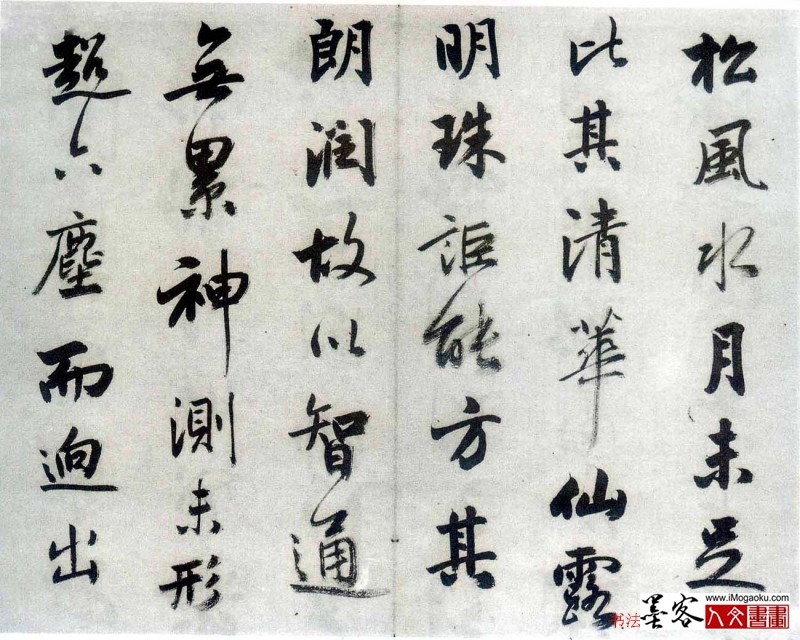 松風水月未足
比其清華仙露
明珠詎能方其
朗潤故以智通
無累神測未形
超六塵而迥出
www.iMogaoku.com
书法墨客人文書畫